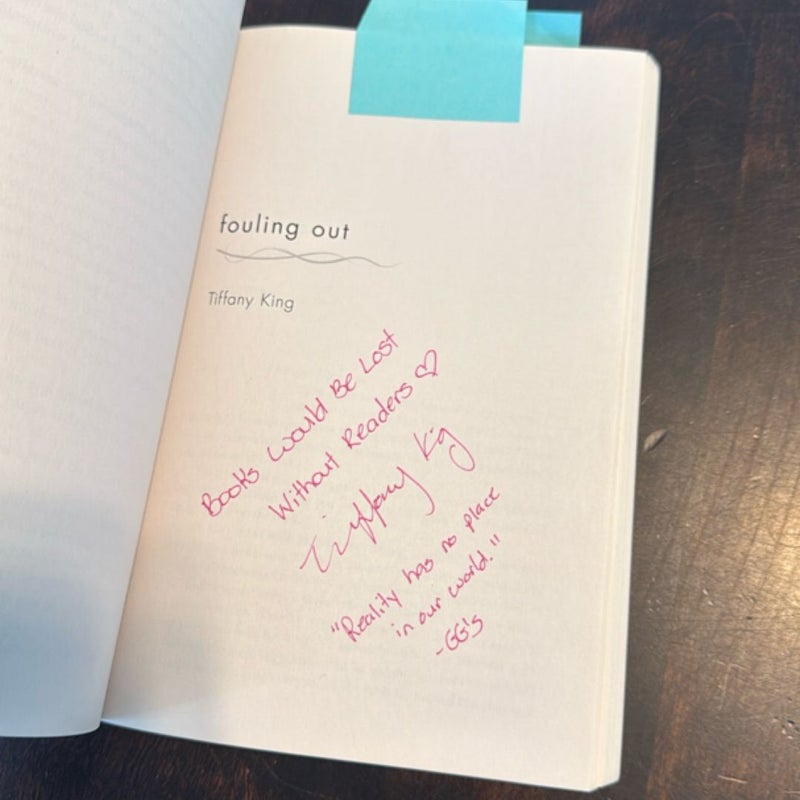 fouling out
Tiffany King
Books Would Be Lost
Without Readers ♡
Tiffany King
"Reality has no place
in our world."
-GG's